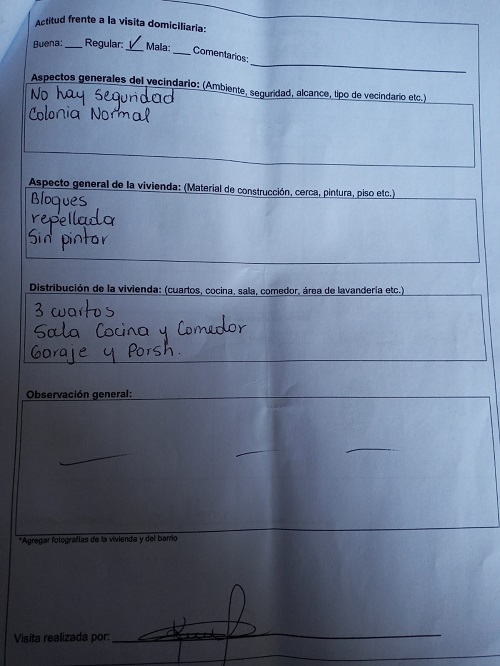 Actitud frente a la visita domiciliaria:
Buena: ___ Regular: ✓ Mala: ___ Comentarios: ___
Aspectos generales del vecindario: (Ambiente, seguridad, alcance, tipo de vecindario etc.)
No hay seguridad
Colonia Normal
Aspecto general de la vivienda: (Material de construcción, cerca, pintura, piso etc.)
Bloques
repellada
Sin pintar
Distribución de la vivienda: (cuartos, cocina, sala, comedor, área de lavandería etc.)
3 cuartos
Sala Cocina y Comedor
Garaje y Porsh.
Observación general:
*Agregar fotografías de la vivienda y del barrio
Visita realizada por: